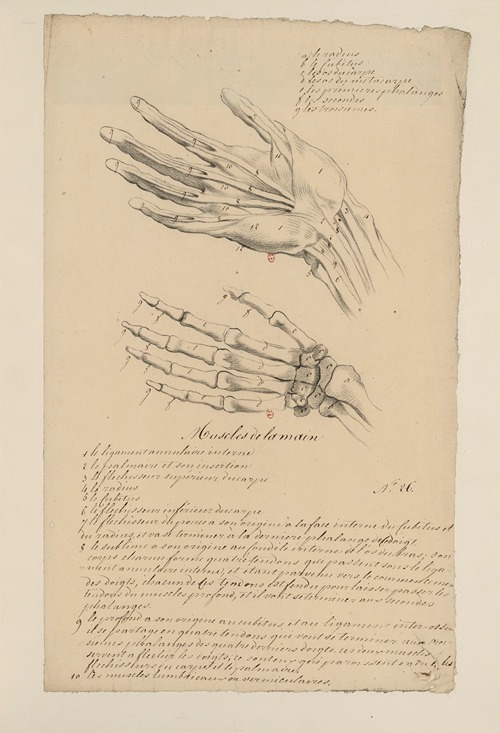 a le radius
b le cubitus
c les os du carpe
d les os du métacarpe
e les premières phalanges
f les secondes
g les troisiemes.
Muscles de la main
N.° 26.
1 le ligament annulaire interne
2 le palmaire et son insertion
3 le flechisseur superieur du carpe
4 le radius
5 le cubitus
6 le flechisseur inférieur du carpe
7 le flechisseur du pouce a son origine à la face interne du cubitus et
du radius, et va se terminer à la dernière phalange de doigt.
8 le sublime a son origine au condile interne de l'os du bras; son
corps charnu fournit quatre tendons qui passent sous le liga-
ment annulaire interne; et étant parvenu vers le commencement
des doigts, chacun de ses tendons est fendu pour laisser passer les
tendons du muscles profond, et il vont se terminer aux secondes
phalanges.
9 le profond a son origine au cubitus et au ligament inter-osseux
et se partage en quatre tendons qui vont se terminer aux troi-
siemes phalanges des quatre derniers doigts, ces deux muscles
servent a flechir les doigts, ce sont eux qui paroissent entre les
flechisseurs du carpe et le palmaire.
10 les muscles lombricaux ou vermiculaires.